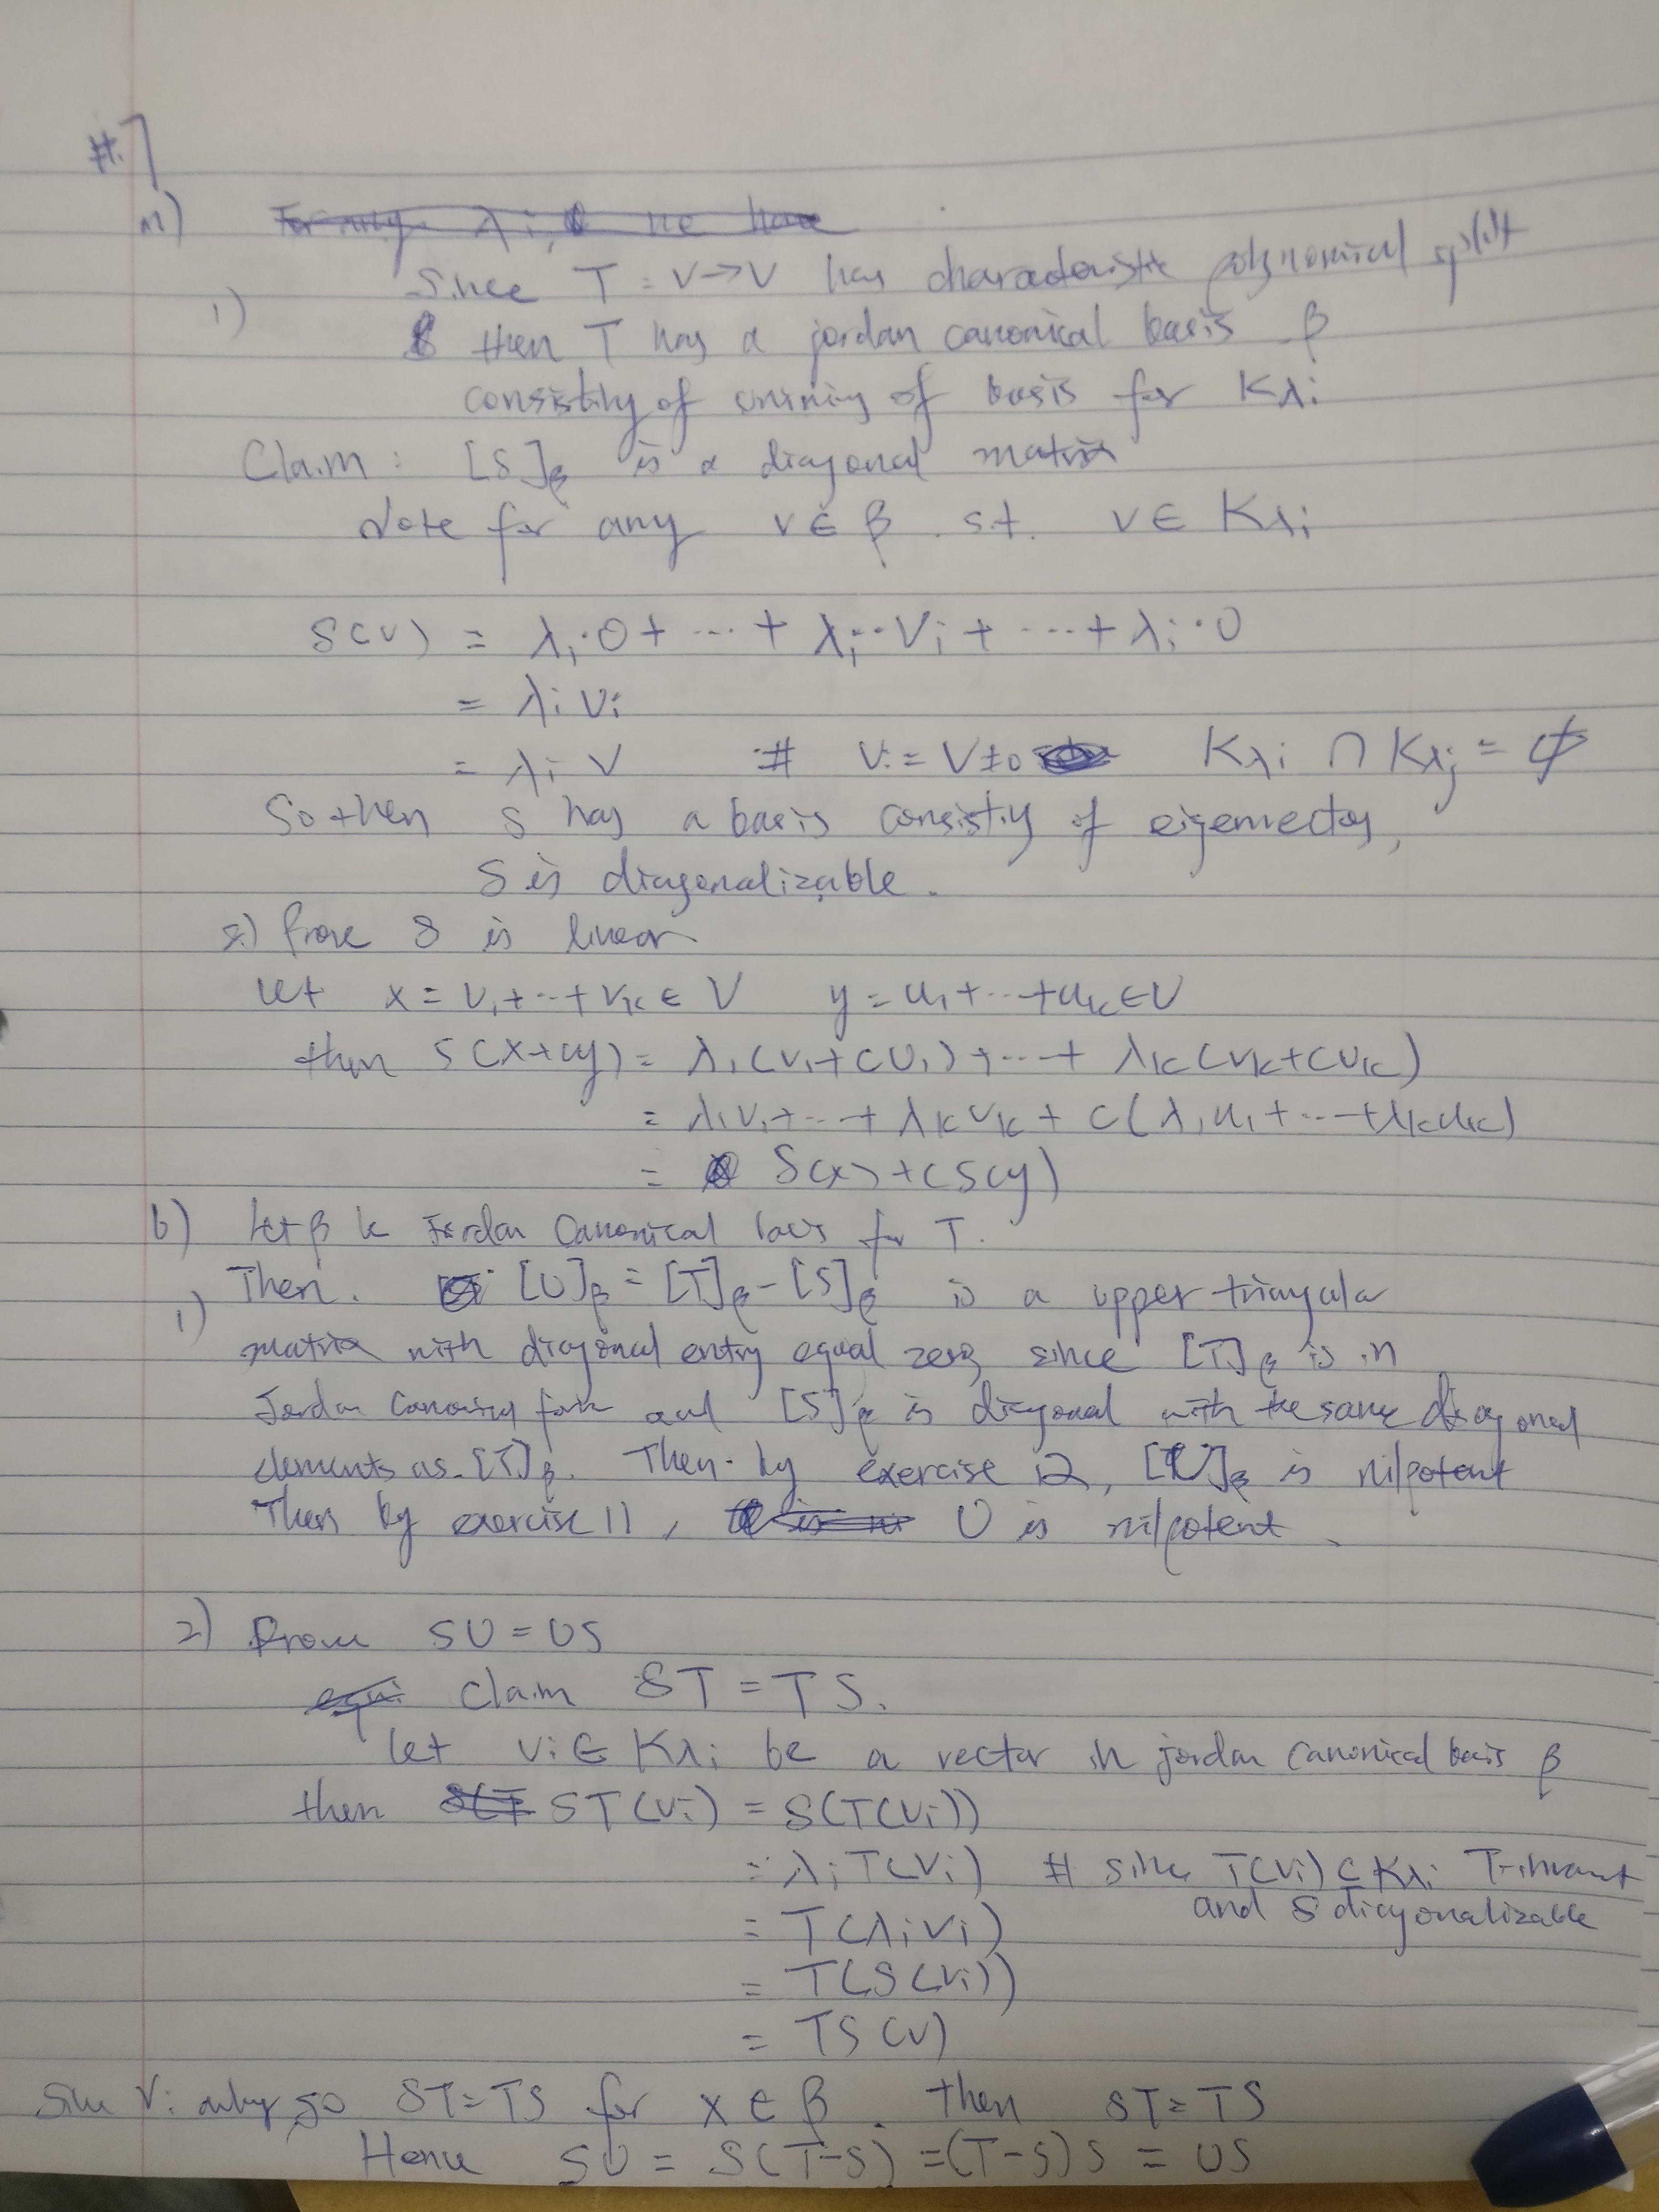 #7
a) ~~For any λi, we have~~
1) Since T: V→V has characteristic polynomial split
then T has a jordan canonical basis β
consistily of unining of basis for Kλi
Claim: [S]β is a diagonal matrix
Note for any v∈β s.t. v∈Kλi
S(v) = λ1·0 + ... + λi·Vi + ... + λi·0
= λi vi
= λi v # Vi = V≠0 Kλi ∩ Kλj = ϕ
So then S has a basis consisting of eigenvectors,
S is diagonalizable.
2) Prove S is linear
let x = v1+...+vk ∈ V y = u1+...+uk ∈ V
then S(x+cy) = λ1(v1+cu1)+...+ λk(vk+cuk)
= λ1v1+...+ λkvk + c(λ1u1+...+λkuk)
= S(x)+cS(y)
b) Let β be Jordan Canonical basis for T.
1) Then. [U]β = [T]β-[S]β is a upper triangular
matrix with diagonal entry equal zero, since [T]β is in
Jordan Canonical form and [S]β is diagonal with the same diagonal
elements as [T]β. Then by exercise 12, [U]β is nilpotent
Then by exercise 11, U is nilpotent.
2) Prove SU=US
claim ST=TS.
let vi∈Kλi be a vector in jordan canonical basis β
then ST(vi) = S(T(vi))
= λiT(vi) # since T(vi)⊂Kλi T-invant
and S diagonalizable
= T(λivi)
= T(S(vi))
= TS(v)
Sine Vi so ST=TS for x∈β. Then ST=TS
Hence SU = S(T-S) =(T-S)S = US